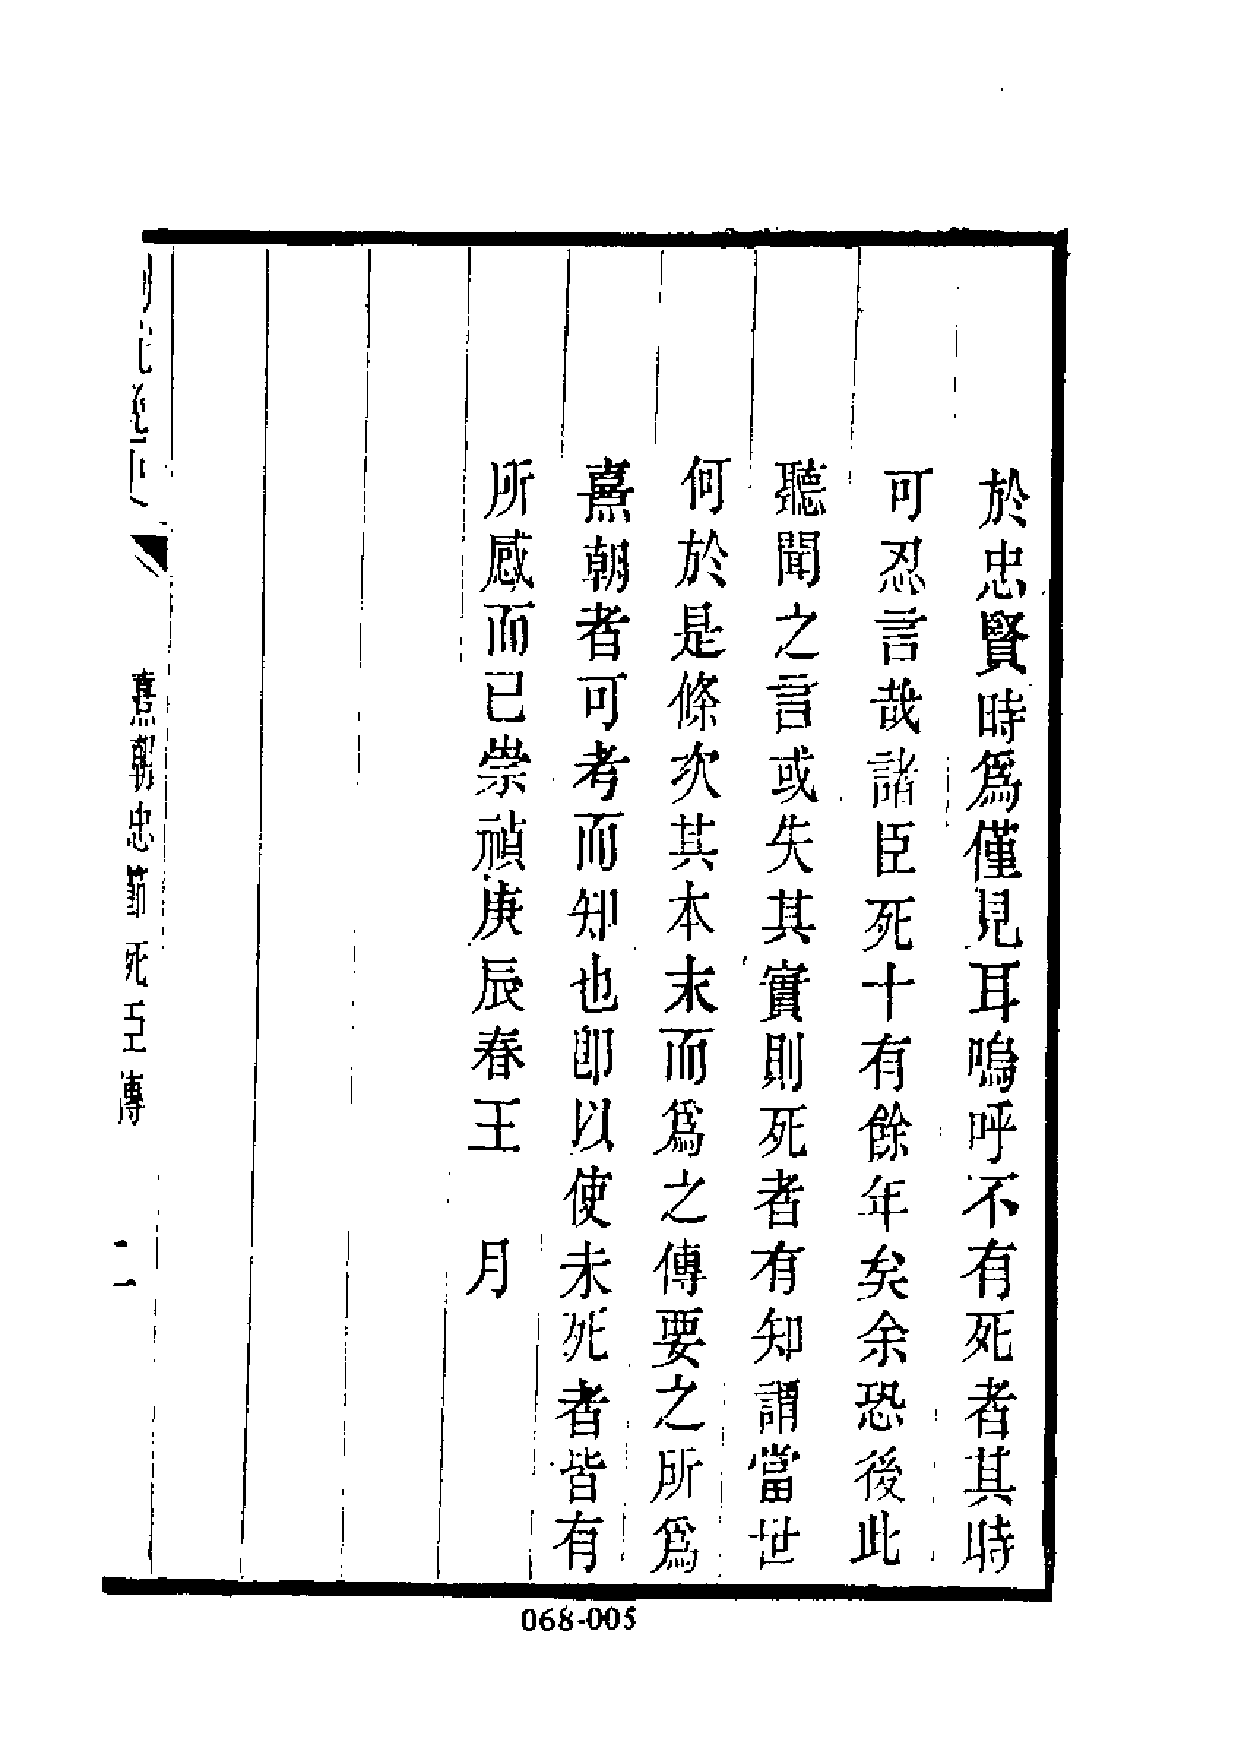 於忠賢時爲僅見耳嗚呼不有死者其時
可忍言哉諸臣死十有餘年矣余恐後此
聽聞之言或失其實則死者有知謂當世
何於是條次其本末而爲之傳要之所爲
熹朝者可考而知也卽以使未死者皆有
所感而已崇禎庚辰春王 月
熹朝忠節死臣傳 二
068-005